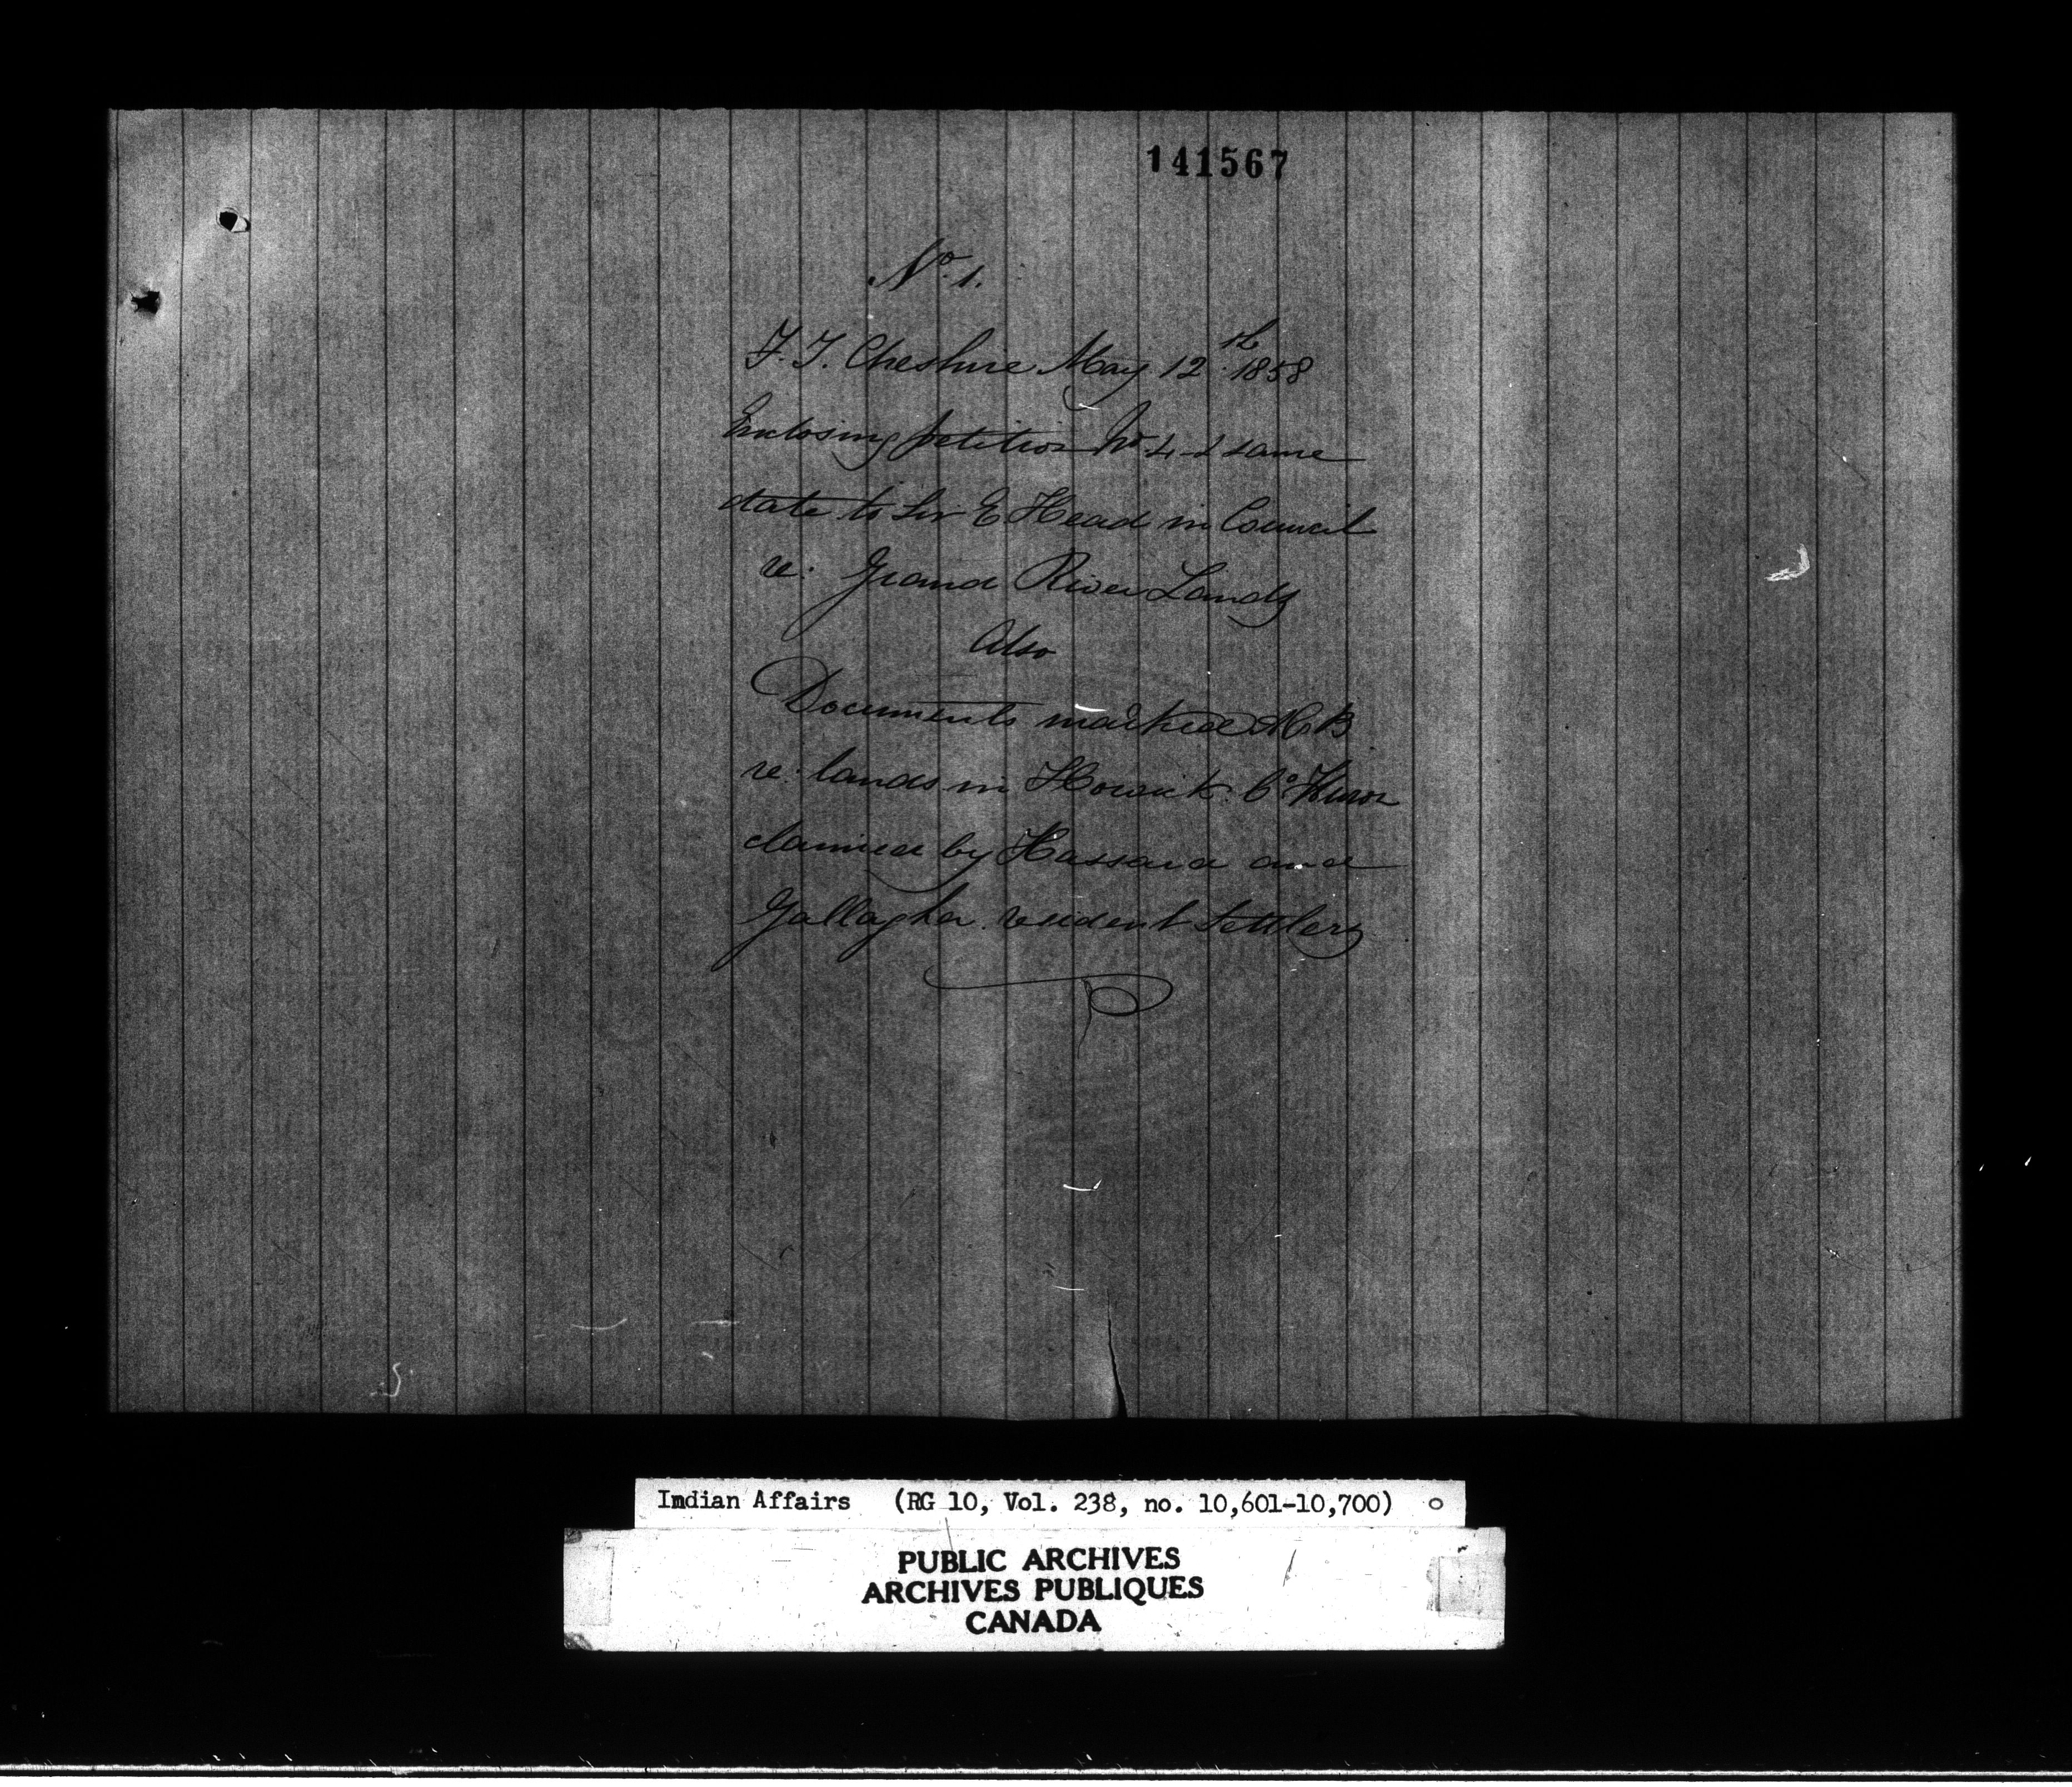 141567
No. 1.
F. T. Cheshire May 12th 1858
Enclosing petition No. 4 & same
date to Sir E Head in Council
re: Grand River Lands
Also
Documents marked A & B
re: lands in Howick Co. Huron
claimed by Hassard and
Gallagher resident Settlers
Indian Affairs (RG 10, Vol. 238, no. 10,601-10,700)
PUBLIC ARCHIVES
ARCHIVES PUBLIQUES
CANADA